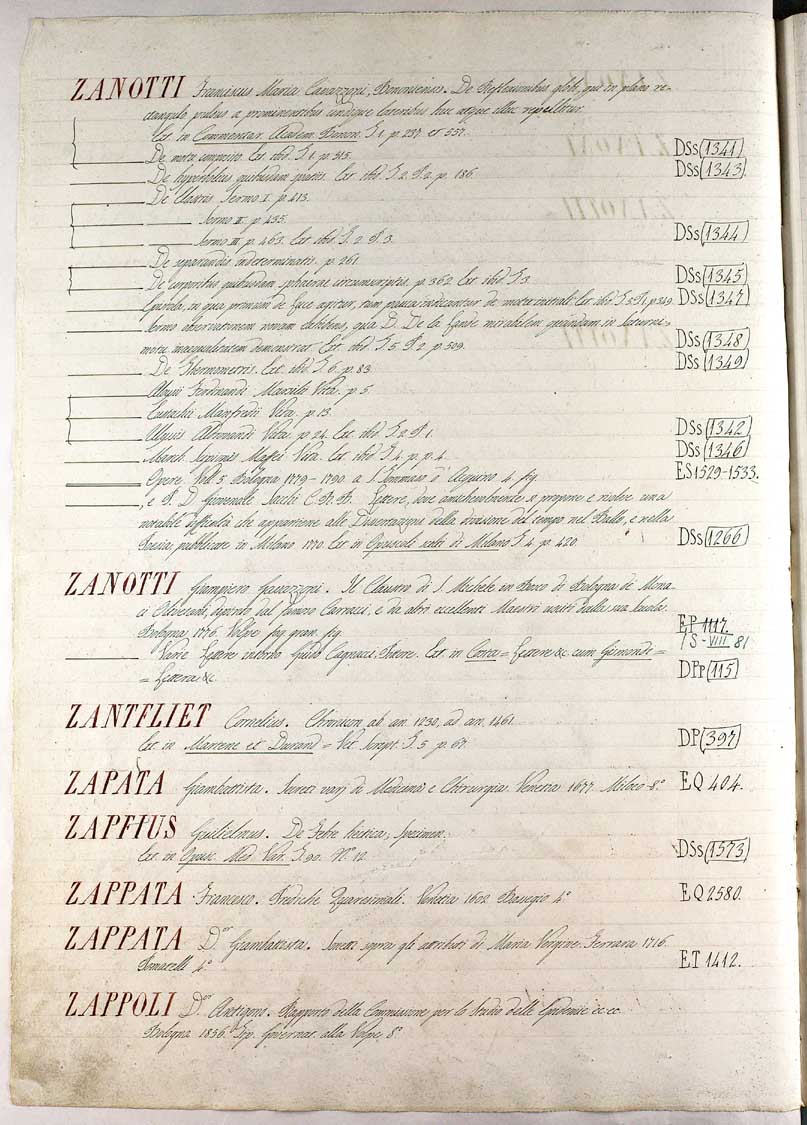 ZANOTTI Franciscus Maria Cavazzoni, Bononiensis. De Reflexionibus globi, qui in plano re-
ctangulo pulsus a prominentibus undique lateribus huc atque illuc repellitur.
Ext. in Commentar. Academ. Bonon. T. 1. p. et 557.
De motu composito. Ext. ibid. T. 1. p. 515. DSs (1341)
De quibusdam Ext. ibid. T. 2. P. 2. p. 186. DSs (1343)
De Sermo I. p. 413.
Sermo II. p. 435.
Sermo III. p. 463. Ext. ibid. T. 2. P. 3. DSs (1344)
De separandis indeterminatis. p. 261.
De corporibus quibusdam sphaerae circumscriptis. p. 362. Ext. ibid. T. 3. DSs (1345)
Epistola, in qua primum de Luce agitur, tum pauca de motu Ext. ibid. T. 5. P. 1. p. 349. DSs (1347)
Sermo observationem novam exhibens, qua D. De la Lande mirabilem quamdam in Saturni-
motu inaequalitatem demonstrat. Ext. ibid. T. 5. P. 2. p. 309. DSs (1348)
De Thermometris. Ext. ibid. T. 6. p. 83. DSs (1349)
Aloysii Ferdinandi Marsilii Vita. p. 5.
Eustachii Manfredii Vita. p. 13.
Ulyssis Aldrovandi Vita. p. 24. Ext. ibid. T. 2. P. 1. DSs (1342)
March. Scipionis Maffei Vita. Ext. ibid. T. 4. p. p. 4. DSs (1346)
Opere. Voll. 5. Bologna 1779-1790. a S. Tommaso d'Aquino 4. fig. ES 1529-1533.
, e P. D. Giovenale Sacchi C. R. B. Lettere, dove amichevolmente si propone e risolve una
notabile difficoltà che appartiene alle Dissertazioni della divisione del tempo nel Ballo, e nella
Poesia, pubblicate in Milano 1770. Ext. in Opuscoli scelti di Milano T. 4. p. 420. DSs (1266)
ZANOTTI Giampiero Cavazzoni. Il Claustro di S. Michele in Bosco di Bologna de' Mona-
ci Olivetani, dipinto dal famoso Carracci, e da altri eccellenti Maestri usciti dalla sua Scuola.
Bologna, 1776. Volpe fog. gran. fig. EP 1117.
/S-VIII 81
Varie Lettere intorno Guido Cagnacci Pittore. Ext. in Costa = Lettere &c. cum Gismondi =
= Lettera &c. DPp (115)
ZANTFLIET Cornelius. Chronicon ab an. 1230, ad an. 1461.
Ext. in Martene et Durand = Vet. Script. T. 5. p. 67. DP (397)
ZAPATA Giambattista. Secreti varj di Medicina e Chirurgia. Venetia 1677. Miloco 8.° EQ 404.
ZAPFIUS Gulielmus. De Febre hectica, Specimen.
Ext. in Opusc. Med. Var. T. 90. N.° 12. DSs (1573)
ZAPPATA Francesco. Prediche Quaresimali. Venetia 1602. 4.° EQ 2580.
ZAPPATA D.or Giambattista. Sonetti sopra gli attributi di Maria Vergine. Ferrara 1716.
Pomatelli 4.° ET 1412.
ZAPPOLI D.or Antigono. Rapporto della Commissione per lo Studio delle Epidemie ec. ec.
Bologna 1856. Tip. Governat. alla Volpe, 8.°